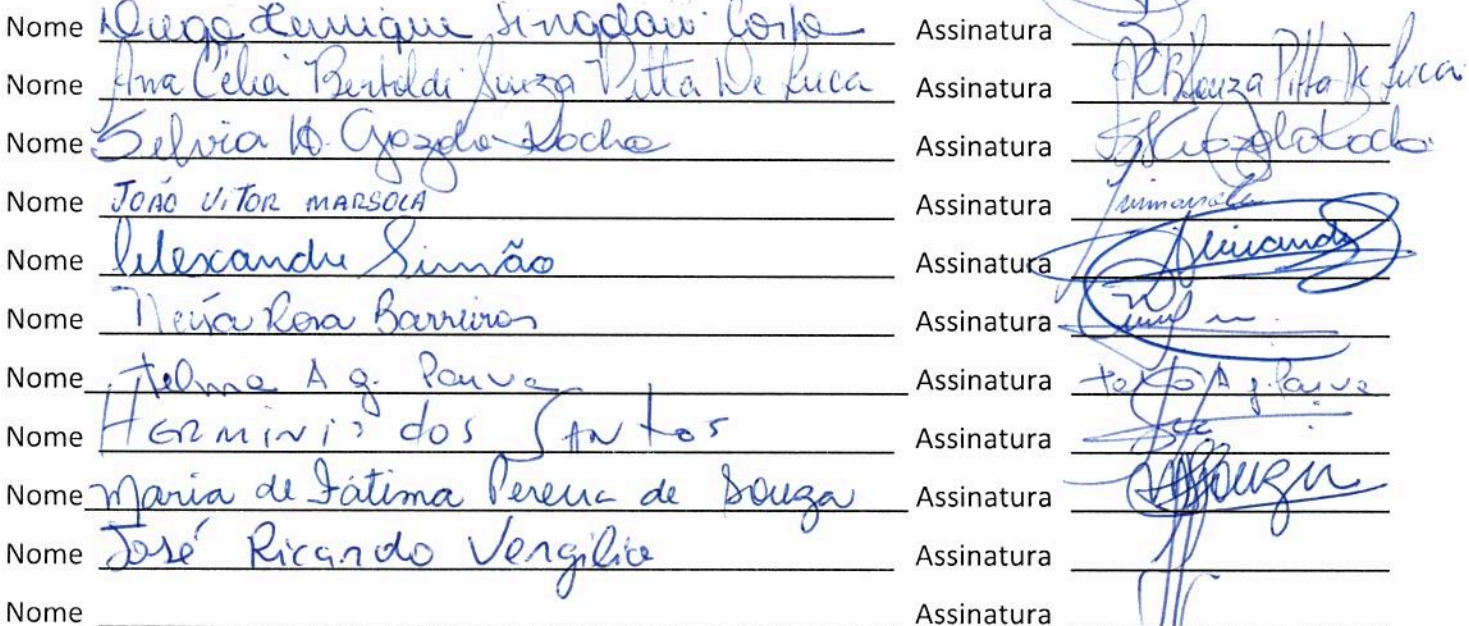 Nome Diego Henrique Singolani Costa Assinatura
Nome Ana Célia Bertoldi Souza Pitta De Luca Assinatura Souza Pitta De Luca
Nome Silvia H. Gozolo Rocha Assinatura Rocha
Nome JOÃO VITOR MARSOLA Assinatura
Nome Alexandre Simão Assinatura
Nome Neusa Rosa Barreiros Assinatura
Nome Telma A g. Paiva Assinatura A g. Paiva
Nome HERMINIO dos SANtos Assinatura
Nome Maria de Fátima Pereira de Souza Assinatura Souza
Nome José Ricardo Vergílio Assinatura
Nome Assinatura